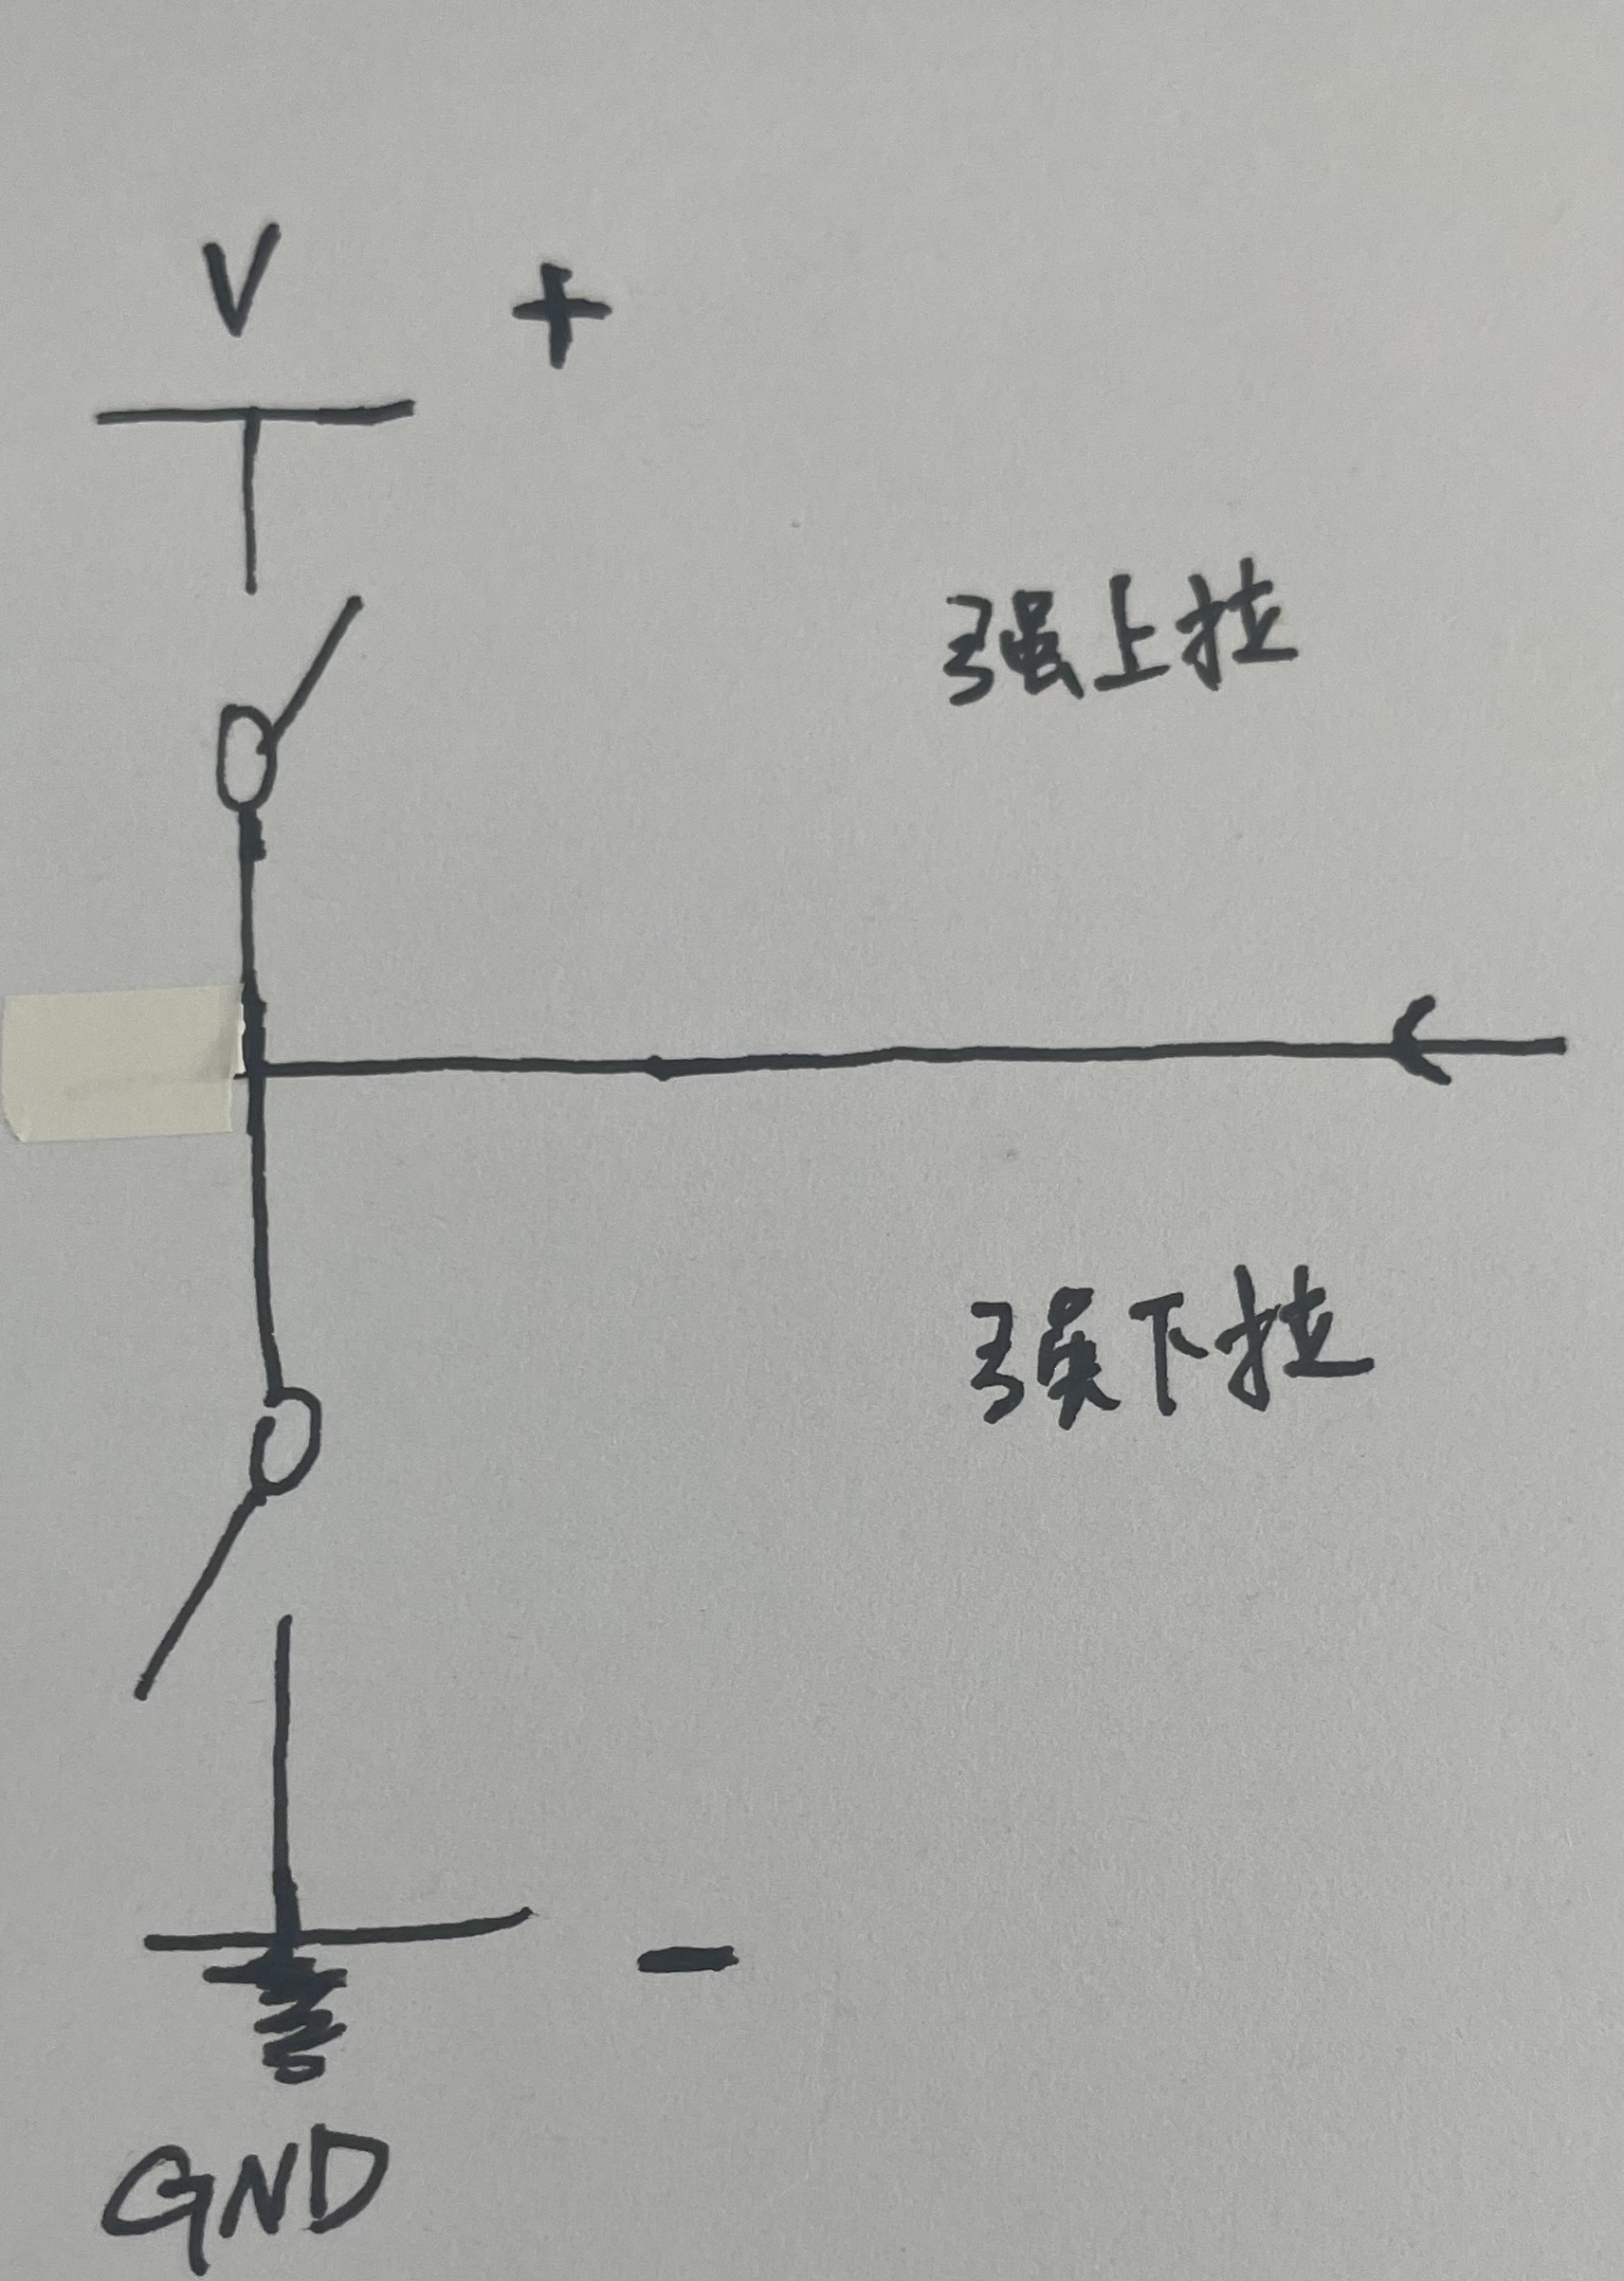 V +
强上拉
强下拉
-
GND